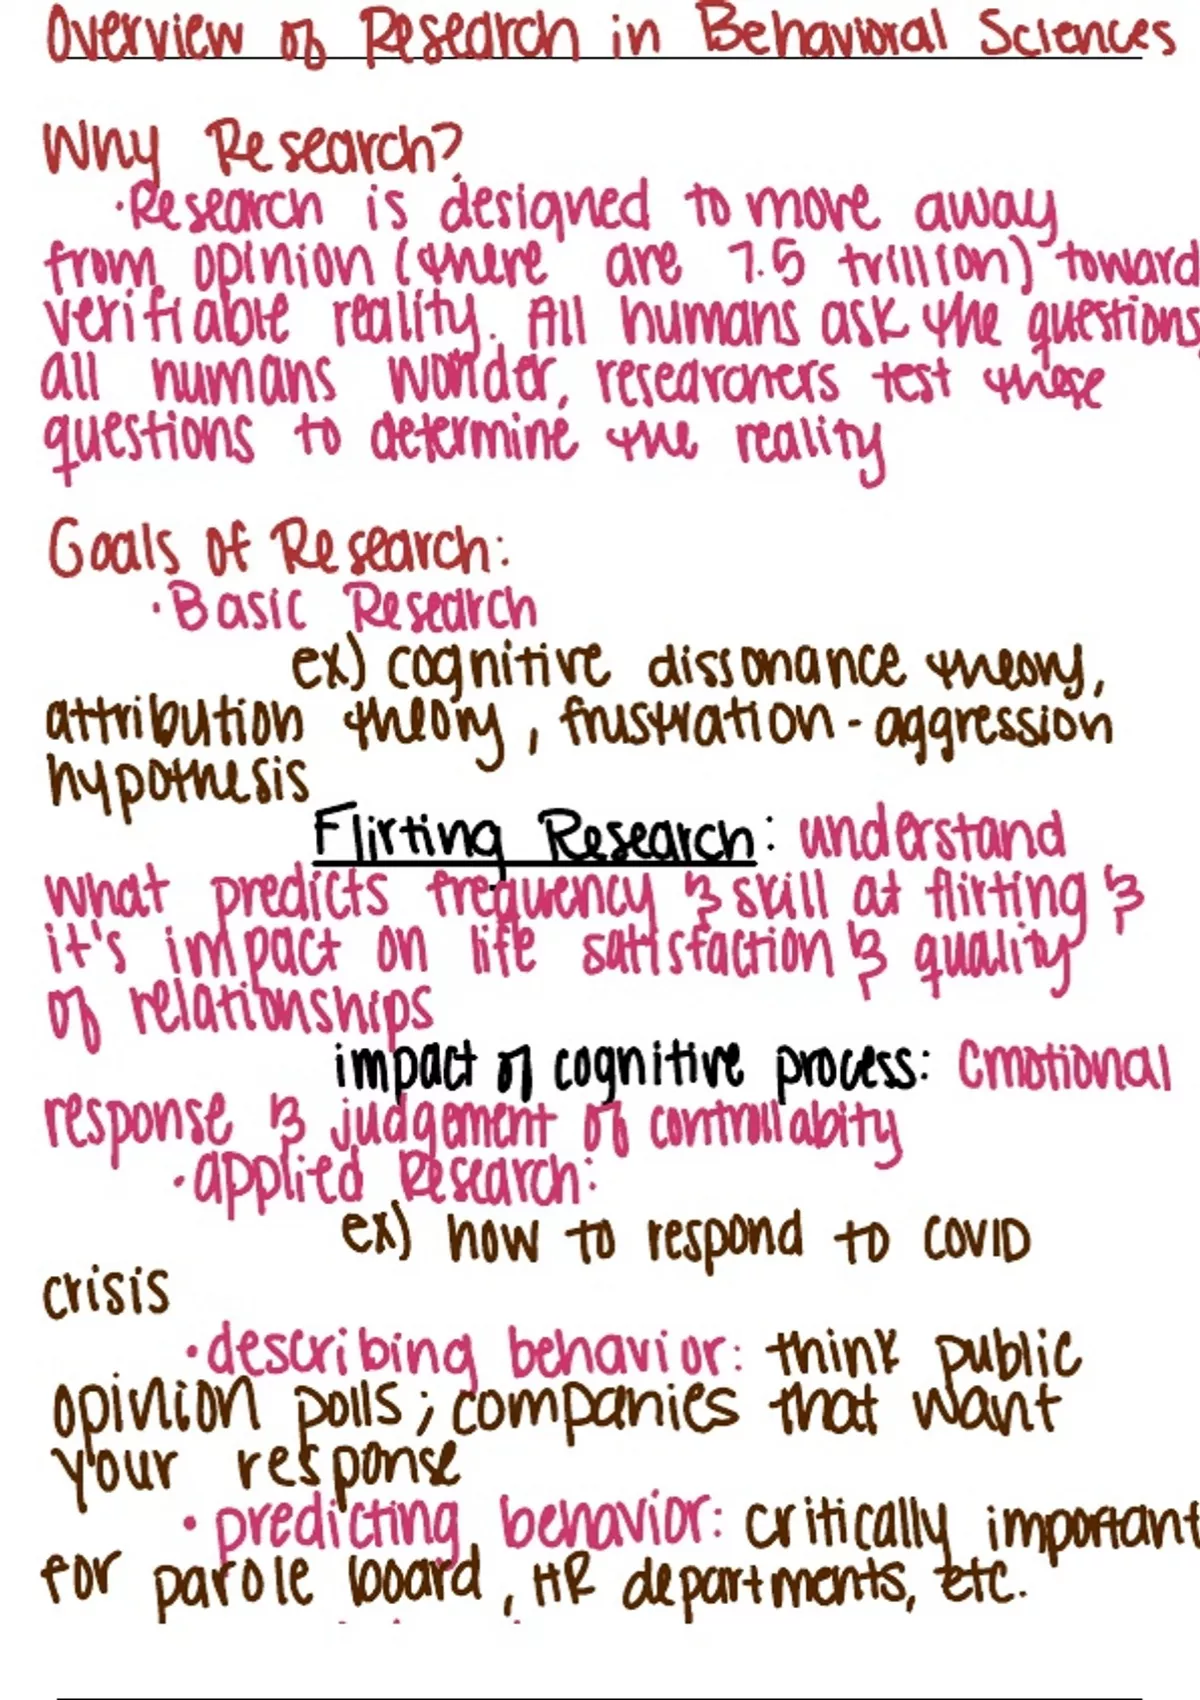 Overview of Research in Behavioral Sciences
Why Research?
·Research is designed to move away
from opinion (there are 7.5 trillion) toward
verifiable reality. All humans ask the questions,
all humans wonder, researchers test these
questions to determine the reality
Goals of Research:
·Basic Research
ex) cognitive dissonance theory,
attribution theory, frustration-aggression
hypothesis
Flirting Research: understand
what predicts frequency & skill at flirting &
it's impact on life satisfaction & quality
of relationships
impact of cognitive process: Emotional
response & judgement of controllabity
·applied Research:
ex) how to respond to COVID
crisis
·describing behavior: think public
opinion polls; companies that want
your response
·predicting behavior: critically important
for parole board, HR departments, etc.